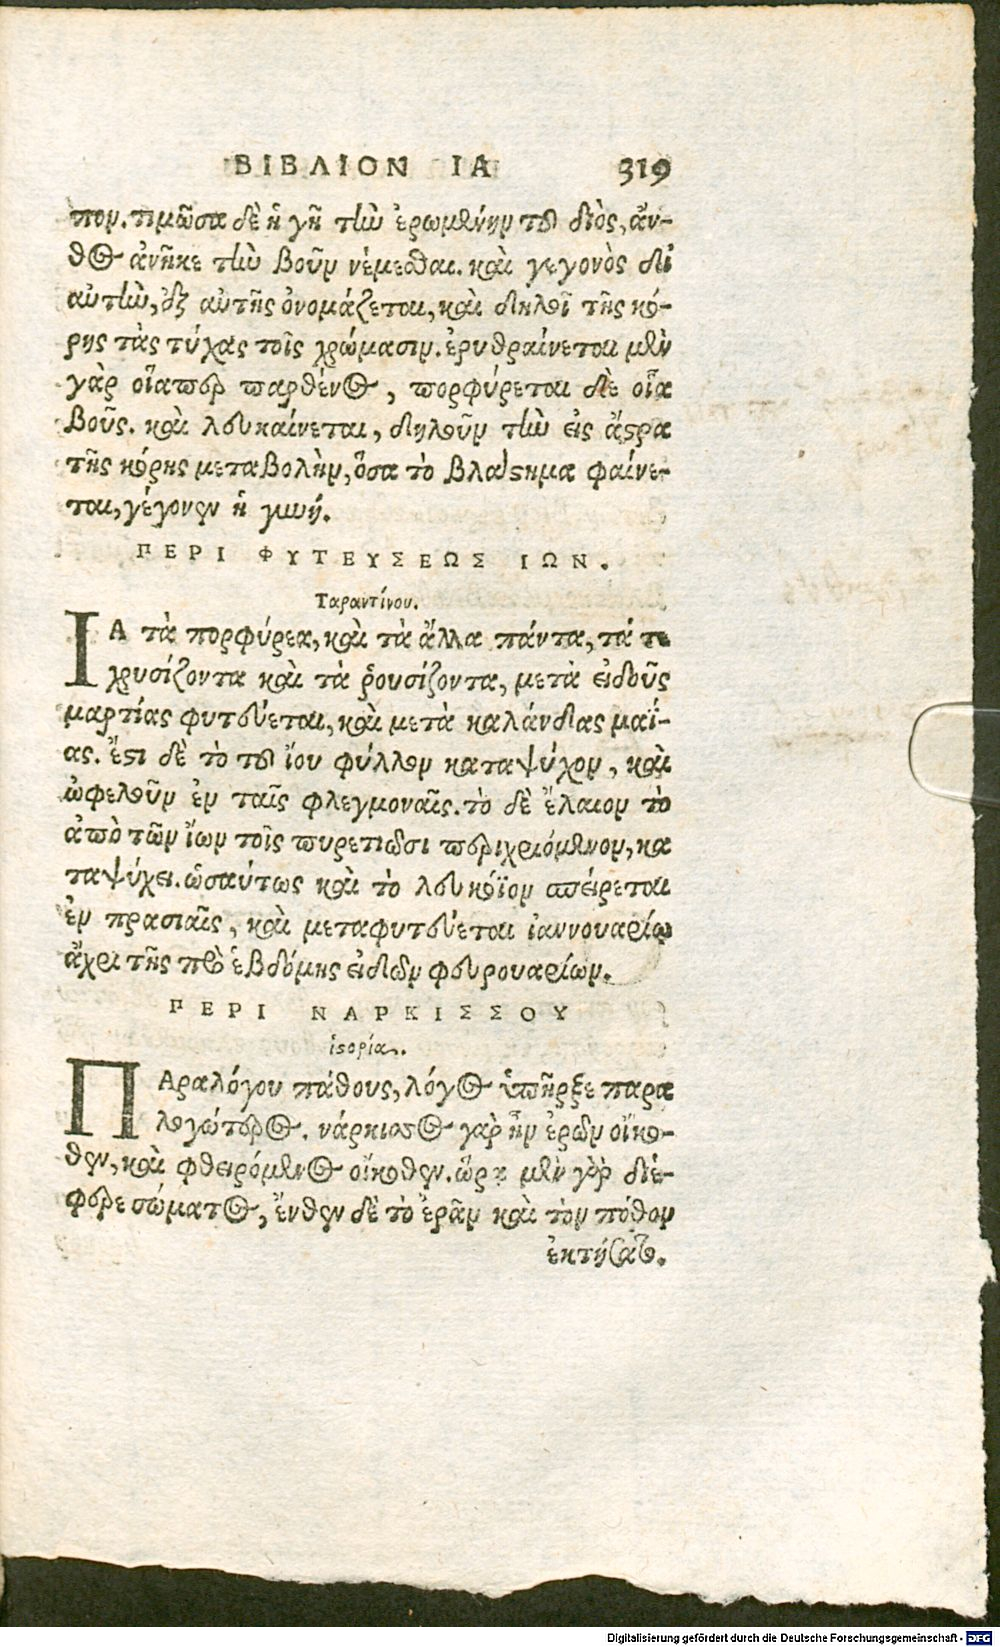 ΒΙΒΛΙΟΝ ΙΑ 319
πον. τιμῶσα δὲ ἡ γῆ τὴν ἐρωμένην τοῦ διὸς, ἄν-
θος ἀνῆκε τὴν βοῦν νέμεσθαι. καὶ γεγονὸς δι'
αὐτὴν, ἐξ αὐτῆς ὀνομάζεται, καὶ δηλοῖ τῆς κό-
ρης τὰς τύχας τοῖς χρώμασιν. ἐρυθραίνεται μὲν
γὰρ οἵαπερ παρθένος, πορφύρεται δὲ οἷα
βοῦς. καὶ λευκαίνεται, δηλοῦν τὴν εἰς ἄστρα
τῆς κόρης μεταβολὴν, ὅσα τὸ βλάστημα φαίνε-
ται, γέγονεν ἡ γυνή.
ΠΕΡΙ ΦΥΤΕΥΣΕΩΣ ΙΩΝ.
Ταραντίνου.
ΙΑ τὰ πορφύρεα, καὶ τὰ ἄλλα πάντα, τά τε
χρυσίζοντα καὶ τὰ ῥουσίζοντα, μετὰ εἰδοῦς
μαρτίας φυτεύεται, καὶ μετὰ καλάνδας μαΐ-
ας. ἔστι δὲ τὸ τοῦ ἴου φύλλον καταψύχον, καὶ
ὠφελοῦν ἐν ταῖς φλεγμοναῖς. τὸ δὲ ἔλαιον τὸ
ἀπὸ τῶν ἴων τοῖς πυρετιῶσι περιχριόμενον, κα
ταψύχει. ὡσαύτως καὶ τὸ λευκόϊον σπείρεται
ἐν πρασιαῖς, καὶ μεταφυτεύεται ἰαννουαρίῳ
ἄχρι τῆς πρὸ ἑβδόμης εἰδῶν φευρουαρίων.
ΠΕΡΙ ΝΑΡΚΙΣΣΟΥ
ἱστορία.
ΠΑραλόγου πάθους, λόγος ὑπῆρξε παρα
λογώτερος. νάρκισσος γὰρ ἦν ἐρῶν οἴκο-
θεν, καὶ φθειρόμενος οἴκοθεν. ὥρᾳ μὲν γὰρ διέ-
φερε σώματος, ἔνθεν δὲ τὸ ἐρᾶν καὶ τὸν πόθον
ἐκτήσατο.
Digitalisierung gefördert durch die Deutsche Forschungsgemeinschaft - DFG